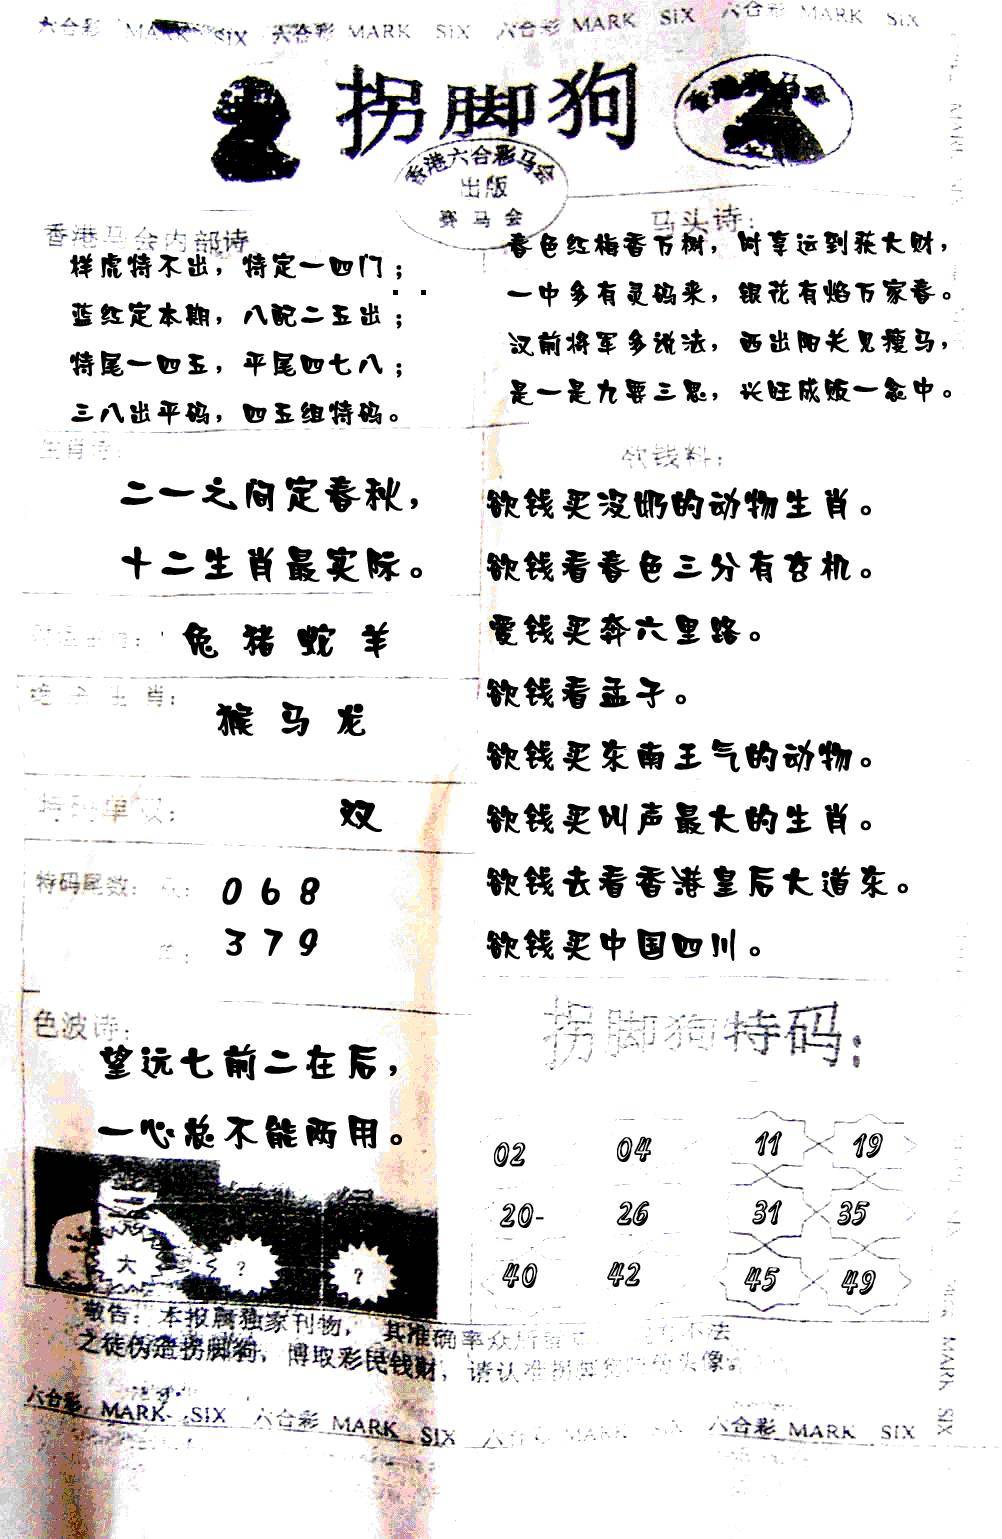 六合彩 MARK SIX 六合彩 MARK SIX 六合彩 MARK SIX 六合彩 MARK SIX
拐脚狗
香港六合彩马会
出版
赛马会
香港马会内部诗
样虎特不出，特定一四门；
蓝红定本期，八配二五出；
特尾一四五，平尾四七八；
三八出平码，四五组特码。
马头诗：
春色红梅香万树，时享运到获大财，
一中多有灵码来，银花有焰万家春。
汉前将军多说法，西出阳关见瘦马，
是一是九要三思，兴旺成败一念中。
生肖诗：
二一之间定春秋，
十二生肖最实际。
兔 猪 蛇 羊
生肖：
猴 马 龙
特码单双：
双
特码尾数：
0 6 8
3 7 9
色波诗：
望远七前二在后，
一心总不能两用。
大
?
?
欲钱料：
欲钱买没奶的动物生肖。
欲钱看春色三分有玄机。
爱钱买奔六里路。
欲钱看孟子。
欲钱买东南王气的动物。
欲钱买叫声最大的生肖。
欲钱去看香港皇后大道东。
欲钱买中国四川。
拐脚狗特码：
02 04 11 19
20- 26 31 35
40 42 45 49
敬告：本报属独家刊物，其准确率众所 不法
之徒伪造拐脚狗，博取彩民钱财，请认准拐脚 头像。
六合彩 MARK SIX 六合彩 MARK SIX 六合彩 MARK SIX 六合彩 MARK SIX
MARK SIX